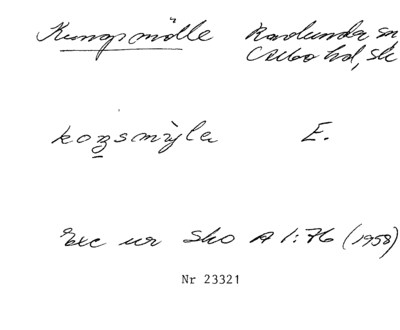 Kungsmölle Ravlunda sn
Albo hd, Sk
koŋsmỳla E.
Exc ur Sko A 1:76 (1958)
Nr 23321